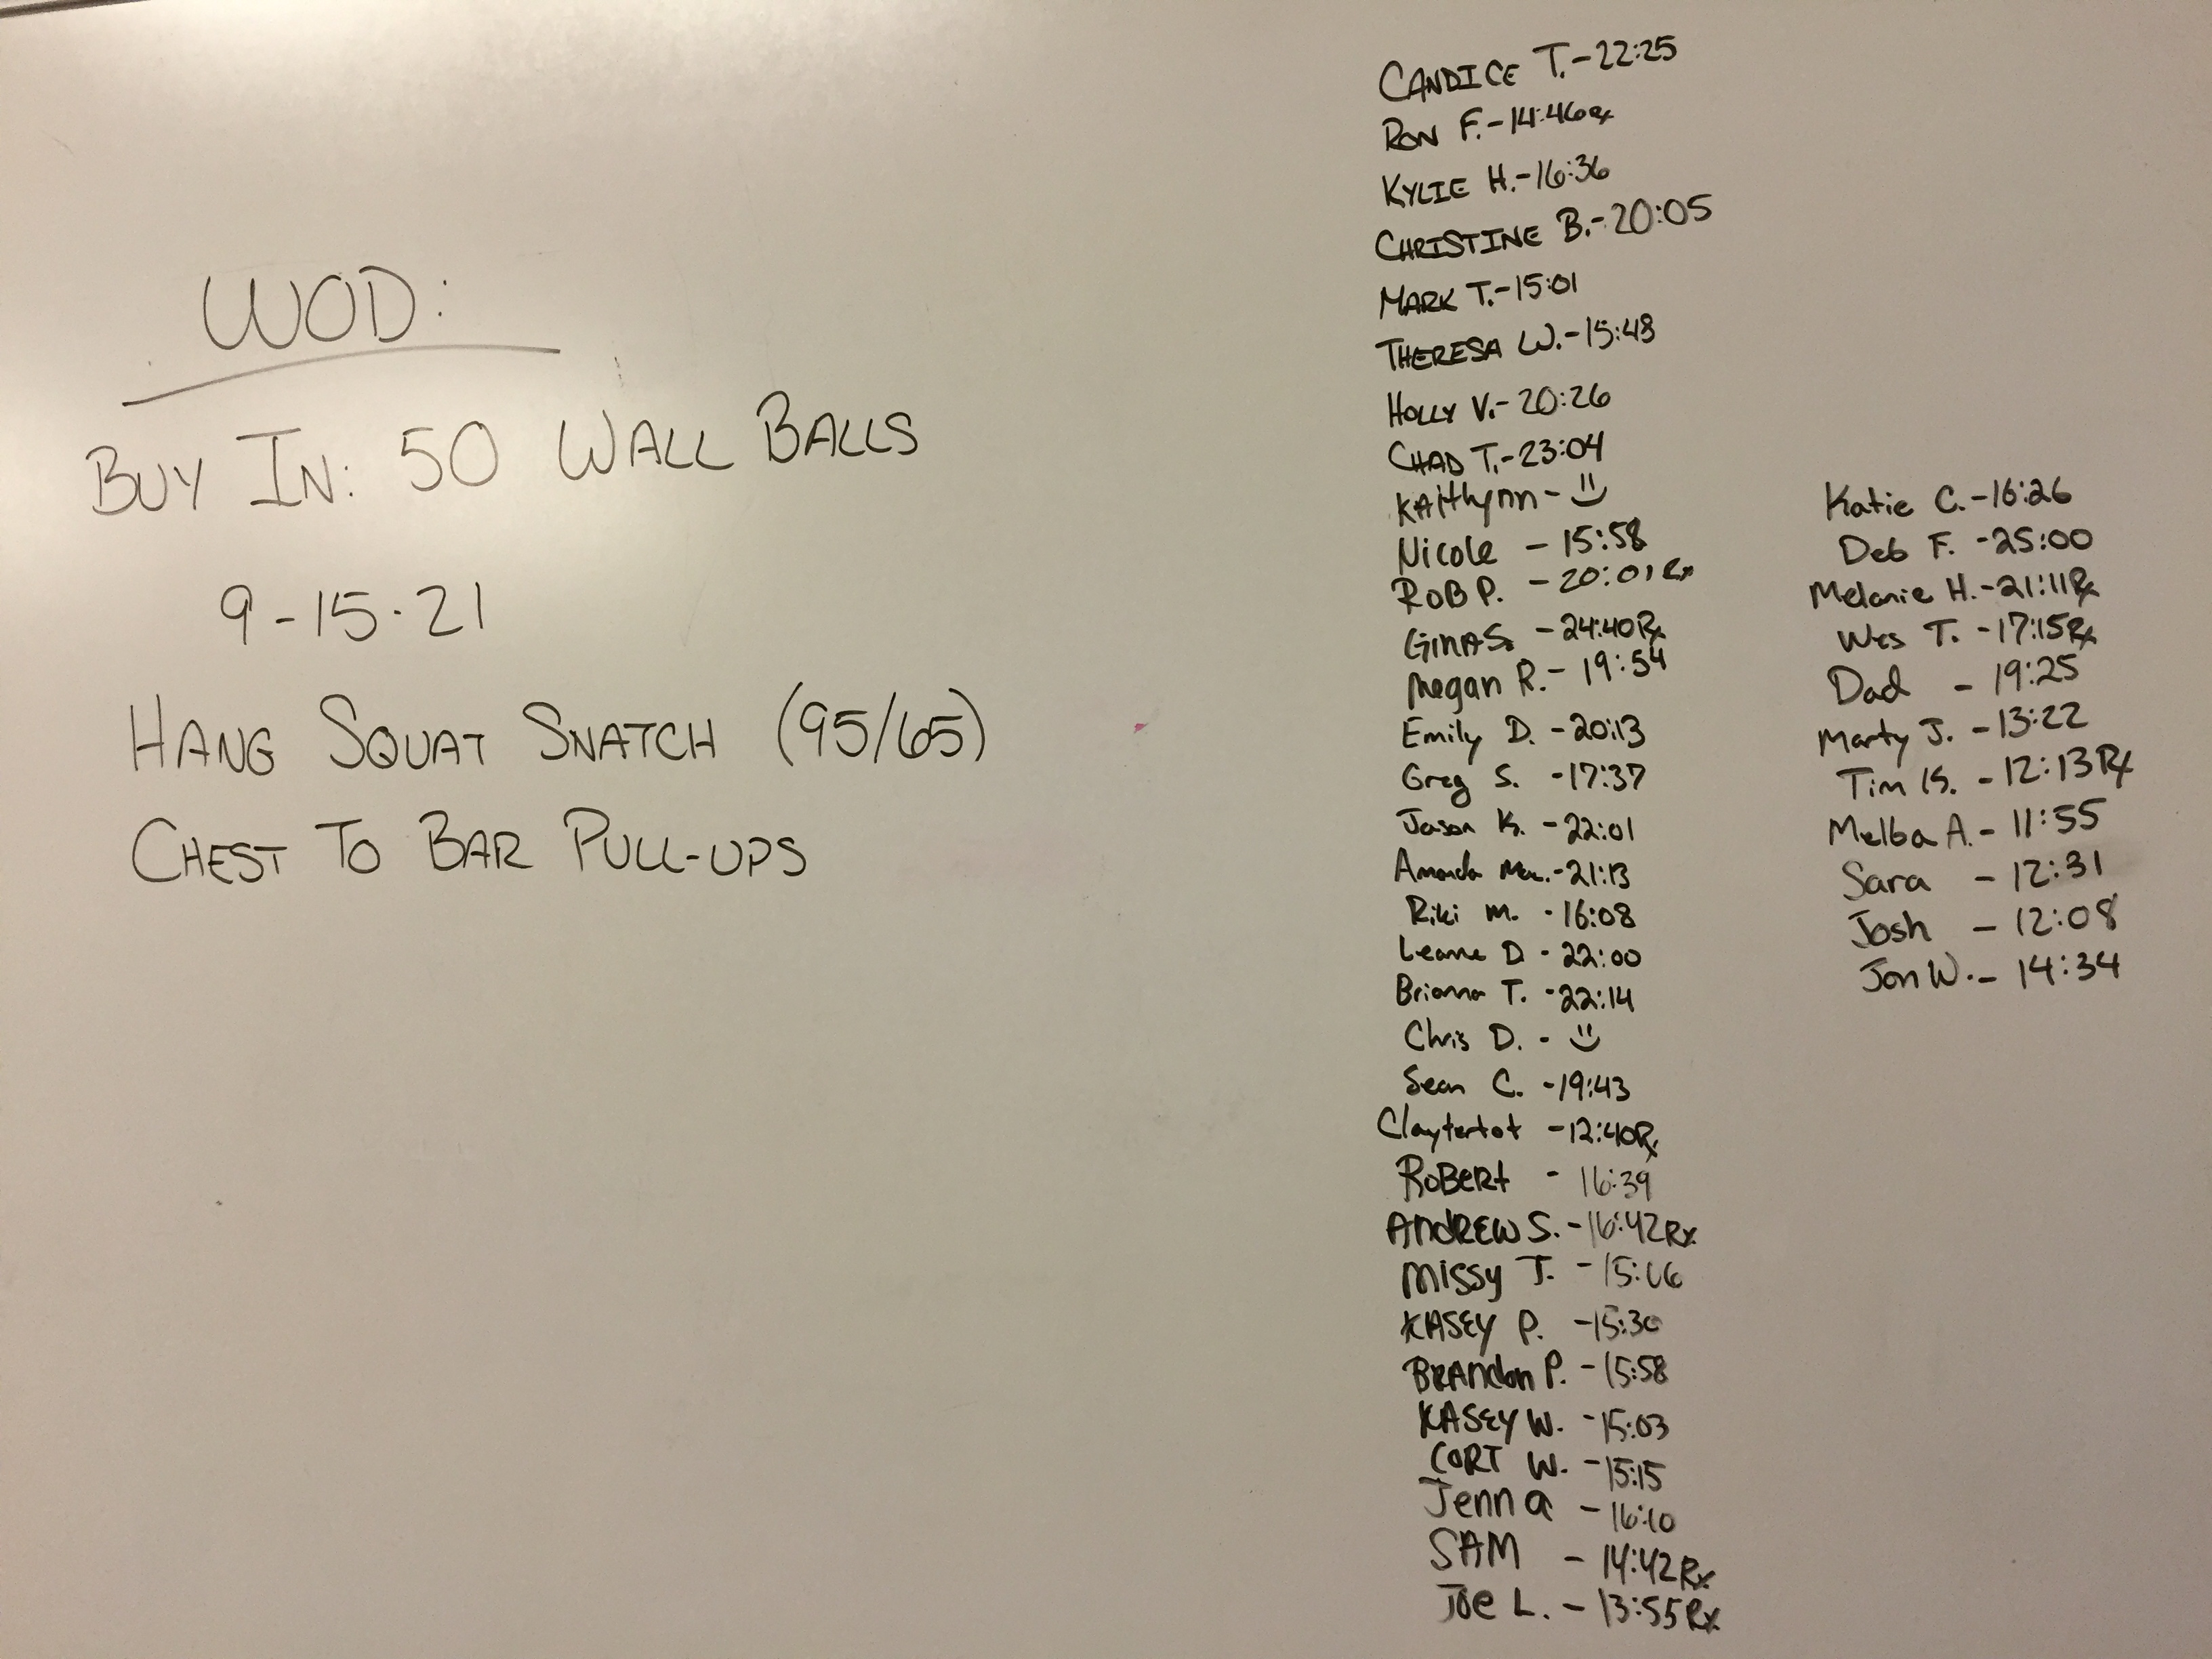 WOD:
BUY IN: 50 WALL BALLS
9-15-21
HANG SQUAT SNATCH (95/65)
CHEST TO BAR PULL-UPS
CANDICE T.-22:25
RON F.-14:46Rx
KYLIE H.-16:36
CHRISTINE B.-20:05
MARK T.-15:01
THERESA W.-15:48
HOLLY V.-20:26
CHAD T.-23:04
KAitlynn-
Nicole - 15:58
ROB P. - 20:01Rx
GinA S. - 24:40Rx
Megan R.- 19:54
Emily D. -20:13
Greg S. -17:37
Jason K. -22:01
Amanda .-21:13
Riki M. -16:08
Leanne D -22:00
Brianna T. -22:14
Chris D. -
Sean C. -19:43
Claytertot -12:40Rx
RoBert - 16:39
AndREW S.-16:42Rx
Missy J. -15:06
KASEY P. -15:30
BRAndon P. -15:58
KASEY W. -15:03
CORT W. -15:15
Jenn a -16:10
SAM - 14:42Rx
Joe L. - 13:55Rx
Katie C.-16:26
Deb F. -25:00
Melanie H.-21:11Rx
Wes T. -17:15Rx
Dad - 19:25
Marty J. -13:22
Tim . -12:13Rx
Melba A.- 11:55
Sara - 12:31
Josh - 12:08
Jon W.- 14:34